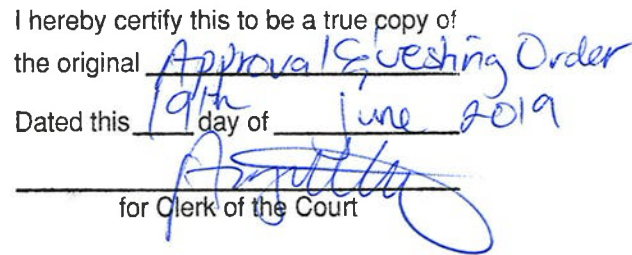 I hereby certify this to be a true copy of
the original Approval & Vesting Order
Dated this 19th day of June 2019
for Clerk of the Court